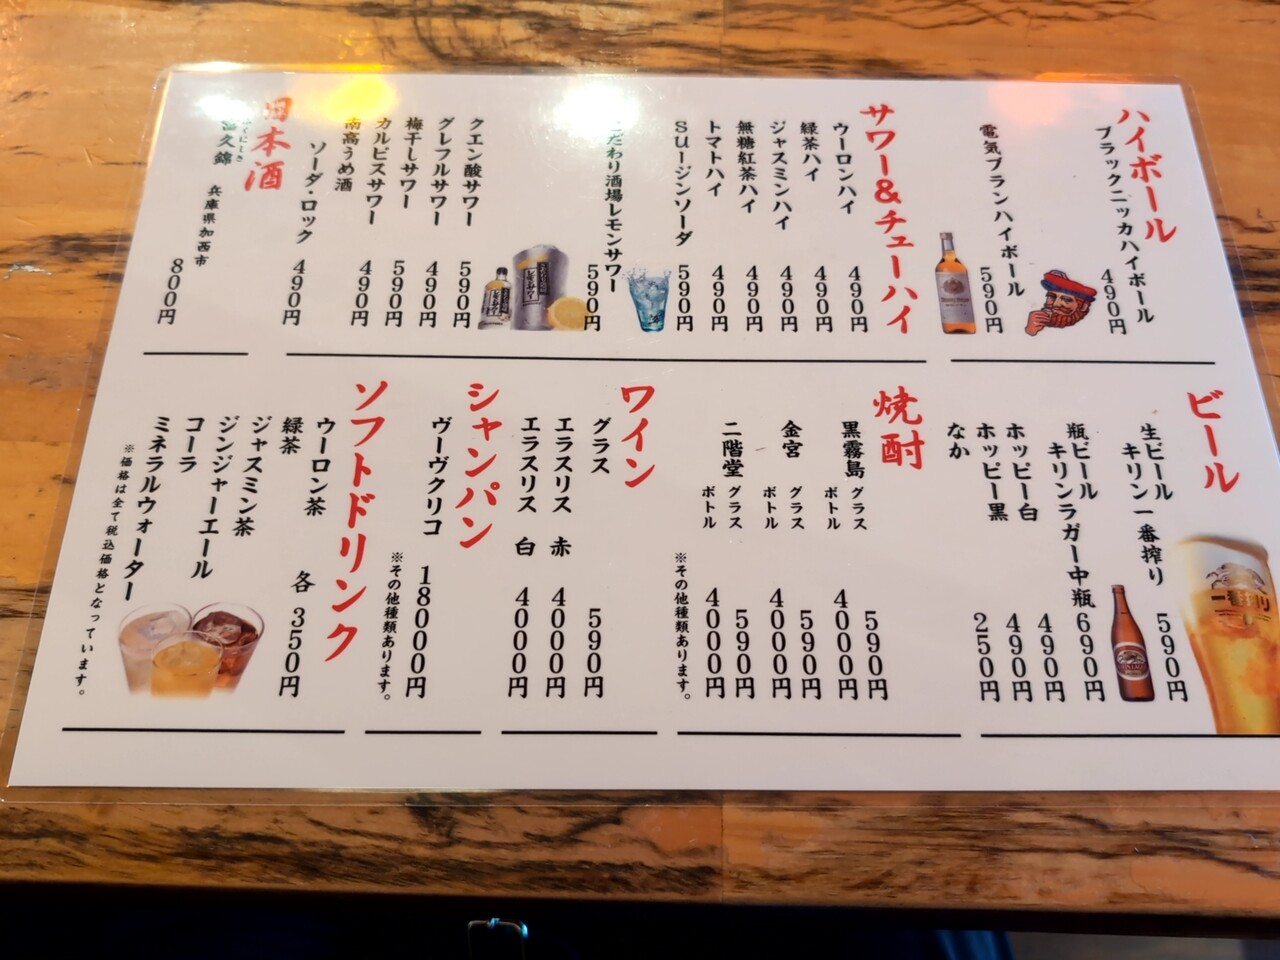 ハイボール
ブラックニッカハイボール 490円
電気ブランハイボール 590円
サワー&チューハイ
ウーロンハイ 490円
緑茶ハイ 490円
ジャスミンハイ 490円
無糖紅茶ハイ 490円
トマトハイ 490円
SUージンソーダ 590円
こだわり酒場レモンサワー 590円
クエン酸サワー 590円
グレフルサワー 490円
梅干しサワー 590円
カルピスサワー 490円
南高うめ酒
ソーダ・ロック 490円
日本酒
富久錦
ふくにしき
兵庫県加西市
800円
ビール
生ビール
キリン一番搾り 590円
瓶ビール
キリンラガー中瓶 690円
ホッピー白 490円
ホッピー黒 490円
なか 250円
一番搾り
焼酎
黒霧島 グラス 590円
ボトル 4000円
金宮 グラス 590円
ボトル 4000円
二階堂 グラス 590円
ボトル 4000円
※その他種類あります。
ワイン
グラス 590円
エラスリス 赤 4000円
エラスリス 白 4000円
シャンパン
ヴーヴクリコ 18000円
※その他種類あります。
ソフトドリンク
ウーロン茶
緑茶 各 350円
ジャスミン茶
ジンジャーエール
コーラ
ミネラルウォーター
※価格は全て税込価格となっています。